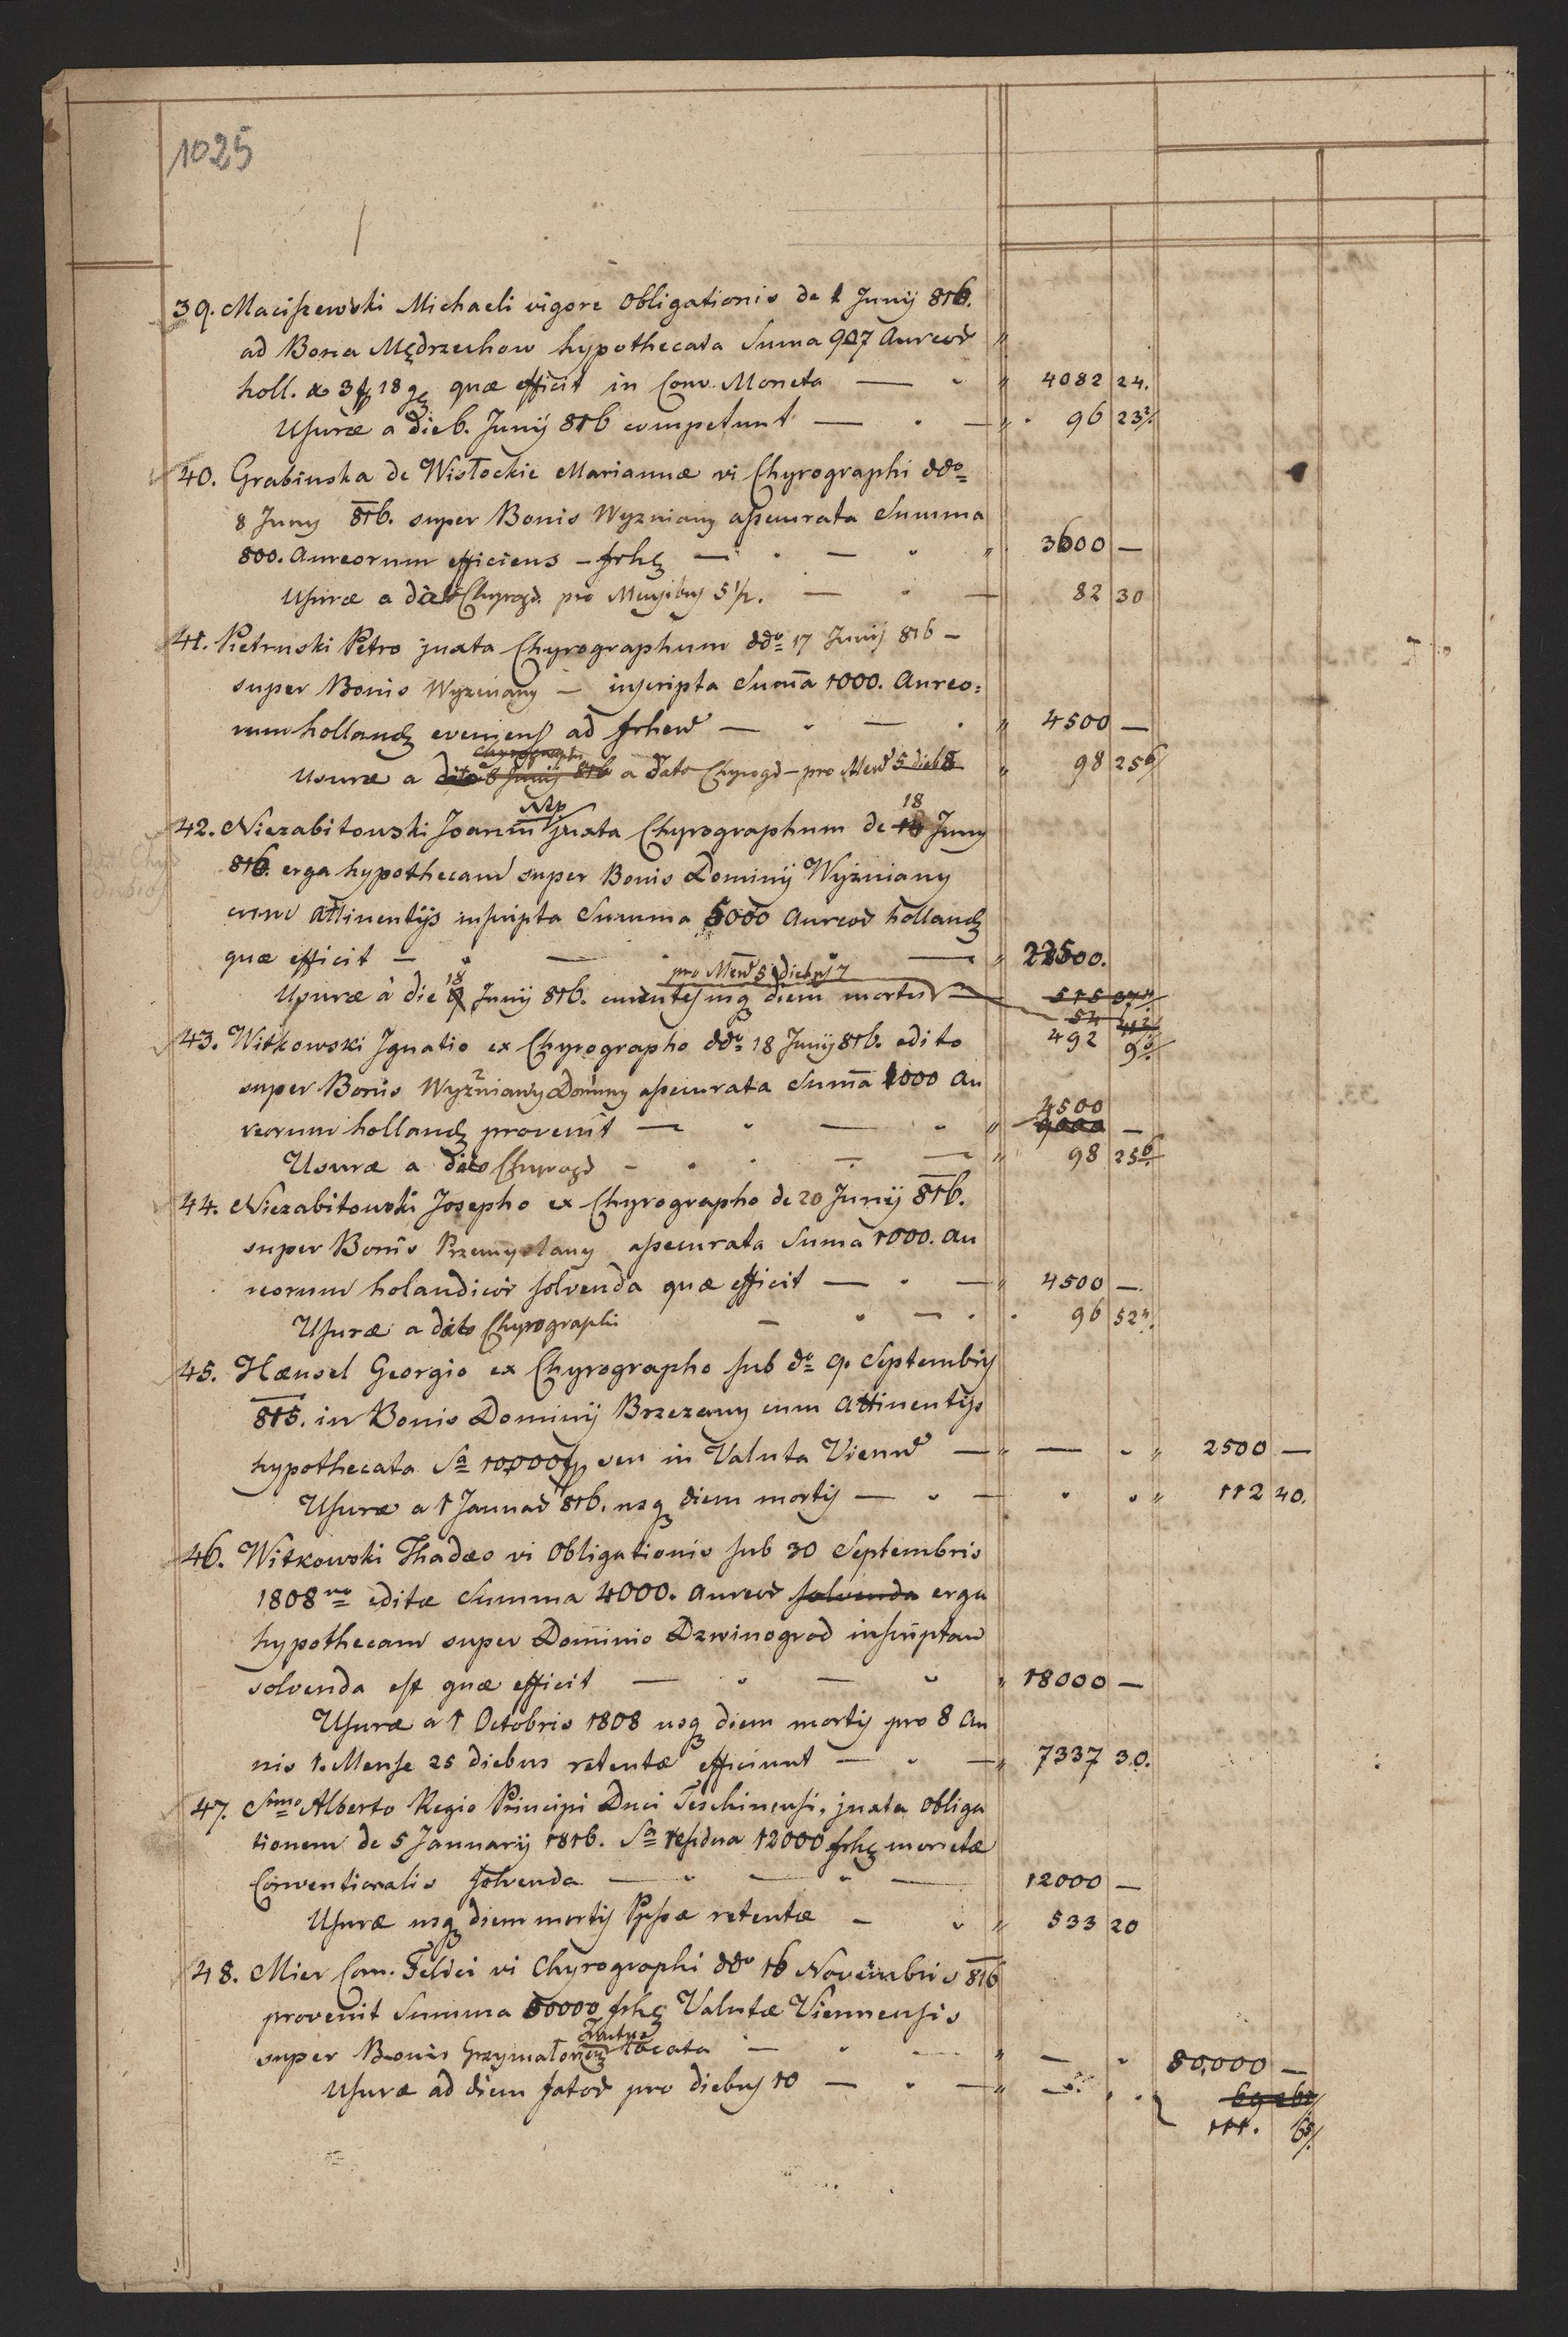 1025
39. Maciszewski Michaeli vigore Obligationis de 1 Junij 816.
ad Bona Mędrzechow hypothecata Suma 907 Aureor
holl. a 3 18 quæ efficit in Conv. Moneta — " 4082 24.
Usuræ a die 6. Junij 816 competunt — " 96 23
40. Grabinska de Wisłockie Mariannæ vi Chyrographi ddo
8 Juny 816. super Bonis Wyzniany assecurata Summa
800. Aureorum efficiens — frh — " 3600 —
Usuræ a dato Chyrogr. pro Mensibus 5 1/2. — 82 30
41. Pietruski Petro juxta Chyrographum ddo 17 Junij 816 —
super Bonis Wyzniany — inscripta Suma 1000. Aureo=
rum holland eveniens ad frhen — " 4500 —
Chyrographi
Usuræ a dato 8 Junij 816 a dato Chyrogr — pro Men 5 dieb 8 " 98 25 6/
18
42. Niezabitowski Joanni juxta Chyrographum de 14 Juny
816. erga hypothecam super Bonis Dominij Wyżniany
cum attinentijs inscripta Summa 5000 Aureor holland
quæ efficit — " 22500.
pro Men 5 diebus 7
18
Usuræ à die Junij 816. usq diem mortis — 515
54
43. Witkowski Ignatio ex Chyrographo ddo 18 Junij 816. edito 492 9
super Bonis Wyzniany Dominy assecurata Suma 1000 Au
4500
reorum holland provenit — " 9000 —
Usuræ a dato Chyrogr — " 98 25 6/
44. Niezabitowski Josepho ex Chyrographo de 20 Junij 816.
super Bonis Przemyslany assecurata Suma 1000. Au
reorum holandicor solvenda quæ efficit — " 4500 —
Usuræ a dato Chyrographi — 96 52
45. Hænsel Georgio ex Chyrographo sub do 9. Septembris
815. in Bonis Dominij Brzezany cum Attinentijs
hypothecata Sa 10,000 seu in Valuta Vienn — " — " 2500 —
Usuræ a 1 Januar 816. usq diem mortis — " 112 40.
46. Witkowski Thadæo vi Obligationis sub 30 Septembris
1808 editæ Summa 4000. Aureor solvenda erga
hypothecam super Dominio Dzwinogrod inscriptam
solvenda est quæ efficit — " 18000 —
Usuræ a 1 Octobris 1808 usq diem mortis pro 8 An
nis 1. Mense 25 diebus retentæ efficiunt — " 7337 30.
47. Smo Alberto Regio Principi Duci Teschinensi, juxta Obliga
tionem de 5 Januarij 1816. Sa residua 12000 frh monetæ
Conventionalis solvenda — 12000 —
Usuræ usq diem mortis Ppssæ retentæ — " 533 20
48. Mier Com. Felici vi Chyrographi ddo 16 Novembris 816
provenit Summa 80000 frh Valutæ Viennensis
super Bonis Grzymałow locata — " — " 80,000 —
Usuræ ad diem fator pro diebus 10 — "
111. 6